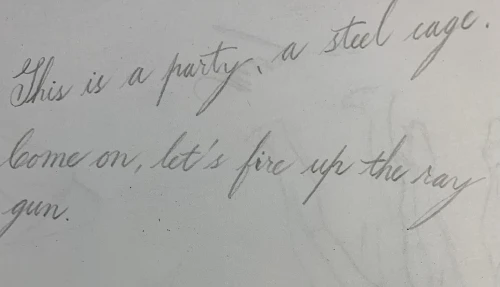 This is a party, a steel cage.
Come on, let's fire up the ray
gun.